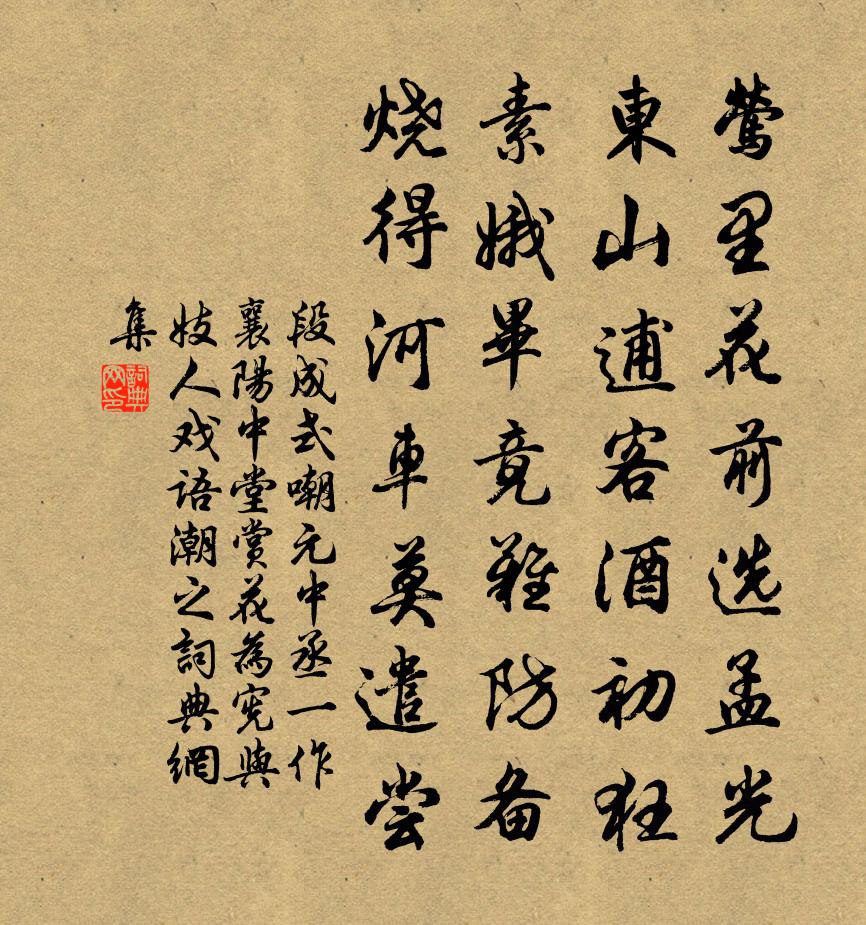 莺里花前选孟光
東山逋客酒初狂
素娥畢竟難防备
烧得河車莫遣尝
段成式嘲元中丞一作
襄陽中堂賞花為憲與
妓人戏语潮之詞典網
集
詞典网印